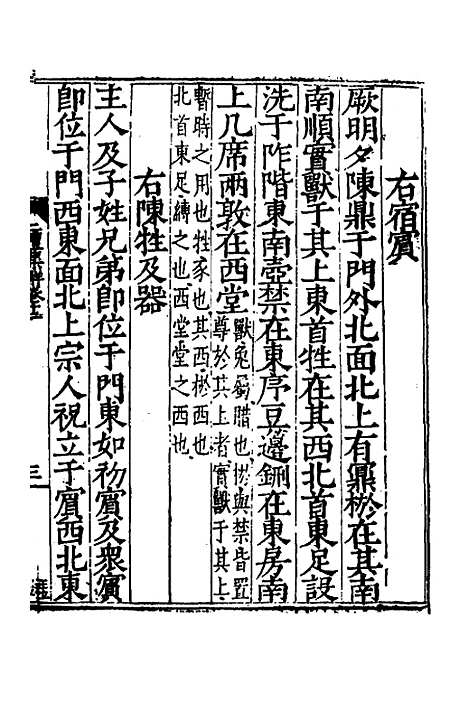 右宿賓
厥明夕陳鼎于門外北面北上有鼏棜在其南
南順實獸于其上東首牲在其西北首東足設
洗于阼階東南壺禁在東序豆籩鉶在東房南
上几席兩敦在西堂獸兔腊也棜與禁皆置
尊於其上者實獸于其上
暫時之用也牲豕也其西棜西也
北首東足縛之也西堂堂之西也
右陳牲及器
主人及子姓兄弟即位于門東如初賓及衆賓
即位于門西東面北上宗人祝立于賓西北東
三